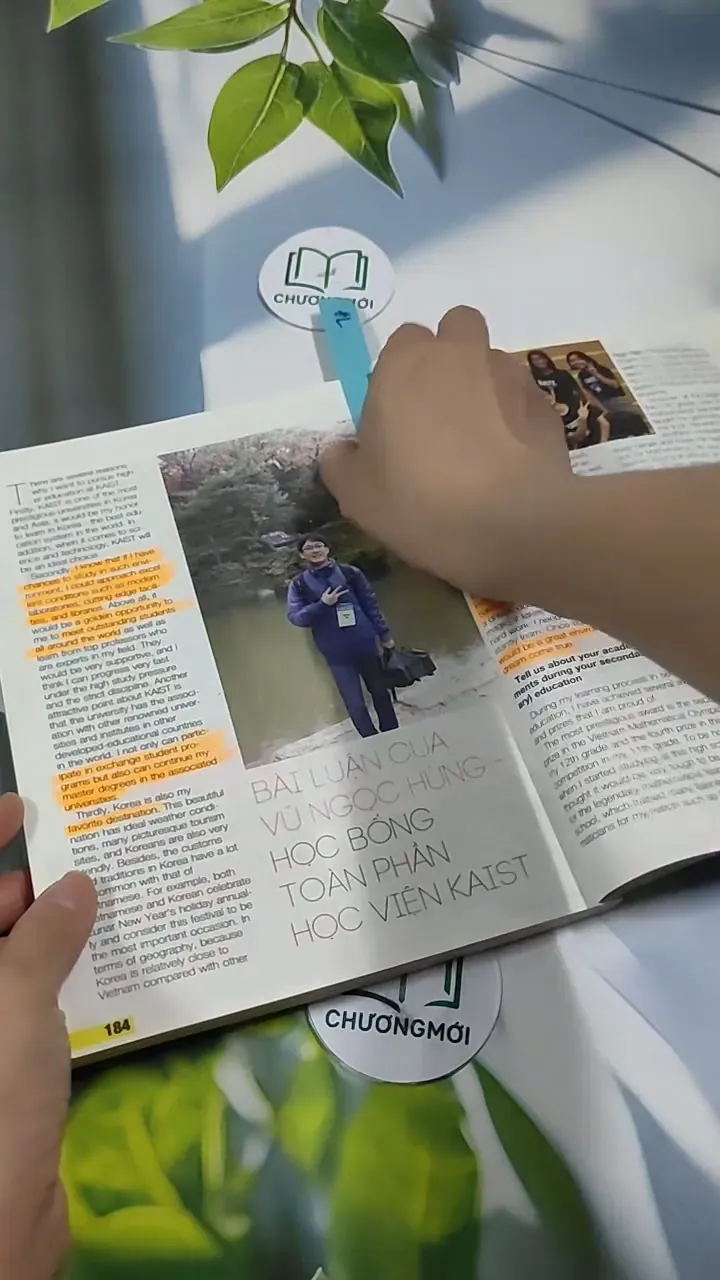 CHƯƠNGMỚI
There are several reasons
why I want to pursue high
er education at KAIST.
Firstly, KAIST is one of the most
prestigious universities in Korea
and Asia; it would be my honor
to learn in Korea - the best edu
cation system in the world. In
addition, when it comes to sci-
ence and technology, KAIST will
be an ideal choice.
Secondly, I know that if I have
chances to study in such envi-
ronment, I could approach excel
lent conditions such as modern
laboratories, cutting edge facili-
ties, and libraries. Above all, it
would be a golden opportunity to
me to meet outstanding students
all around the world as well as
learn from top professors who
are experts in my field. They
would be very supportive, and I
think I can progress very fast
under the high study pressure
and the strict discipline. Another
attractive point about KAIST is
that the university has the associ-
ation with other renowned univer-
sities and institutes in other
developed-educational countries
in the world. I not only can partic-
ipate in exchange student pro-
grams but also can continue my
master degrees in the associated
universities.
Thirdly, Korea is also my
favorite destination. This beautiful
nation has ideal weather condi-
tions, many picturesque tourism
sites, and Koreans are also very
endly. Besides, the customs
d traditions in Korea have a lot
ommon with that of
tnamese. For example, both
etnamese and Korean celebrate
unar New Year's holiday annual-
ly and consider this festival to be
the most important occasion. In
terms of geography, because
Korea is relatively close to
Vietnam compared with other
184
BÀI LUẬN CỦA
VŨ NGỌC HÙNG -
HỌC BỔNG
TOÀN PHẦN
HỌC VIỆN KAIST
would be a great envi
dream come true.
Tell us about your acade
ments during your seconda
ary) education
During my learning process in se
education, I have achieved several
and prizes that I am proud of.
The most prestigious award is the
prize in the Vietnam Mathematical Olymp
my 12th grade and the fourth prize in the
competition in my 11th grade. To be
when I started studying at this high s
thought it would be very tough to be
for the legendary mathematical
school, which trained many talent
maticians for my nation such as
CHƯƠNGMỚI